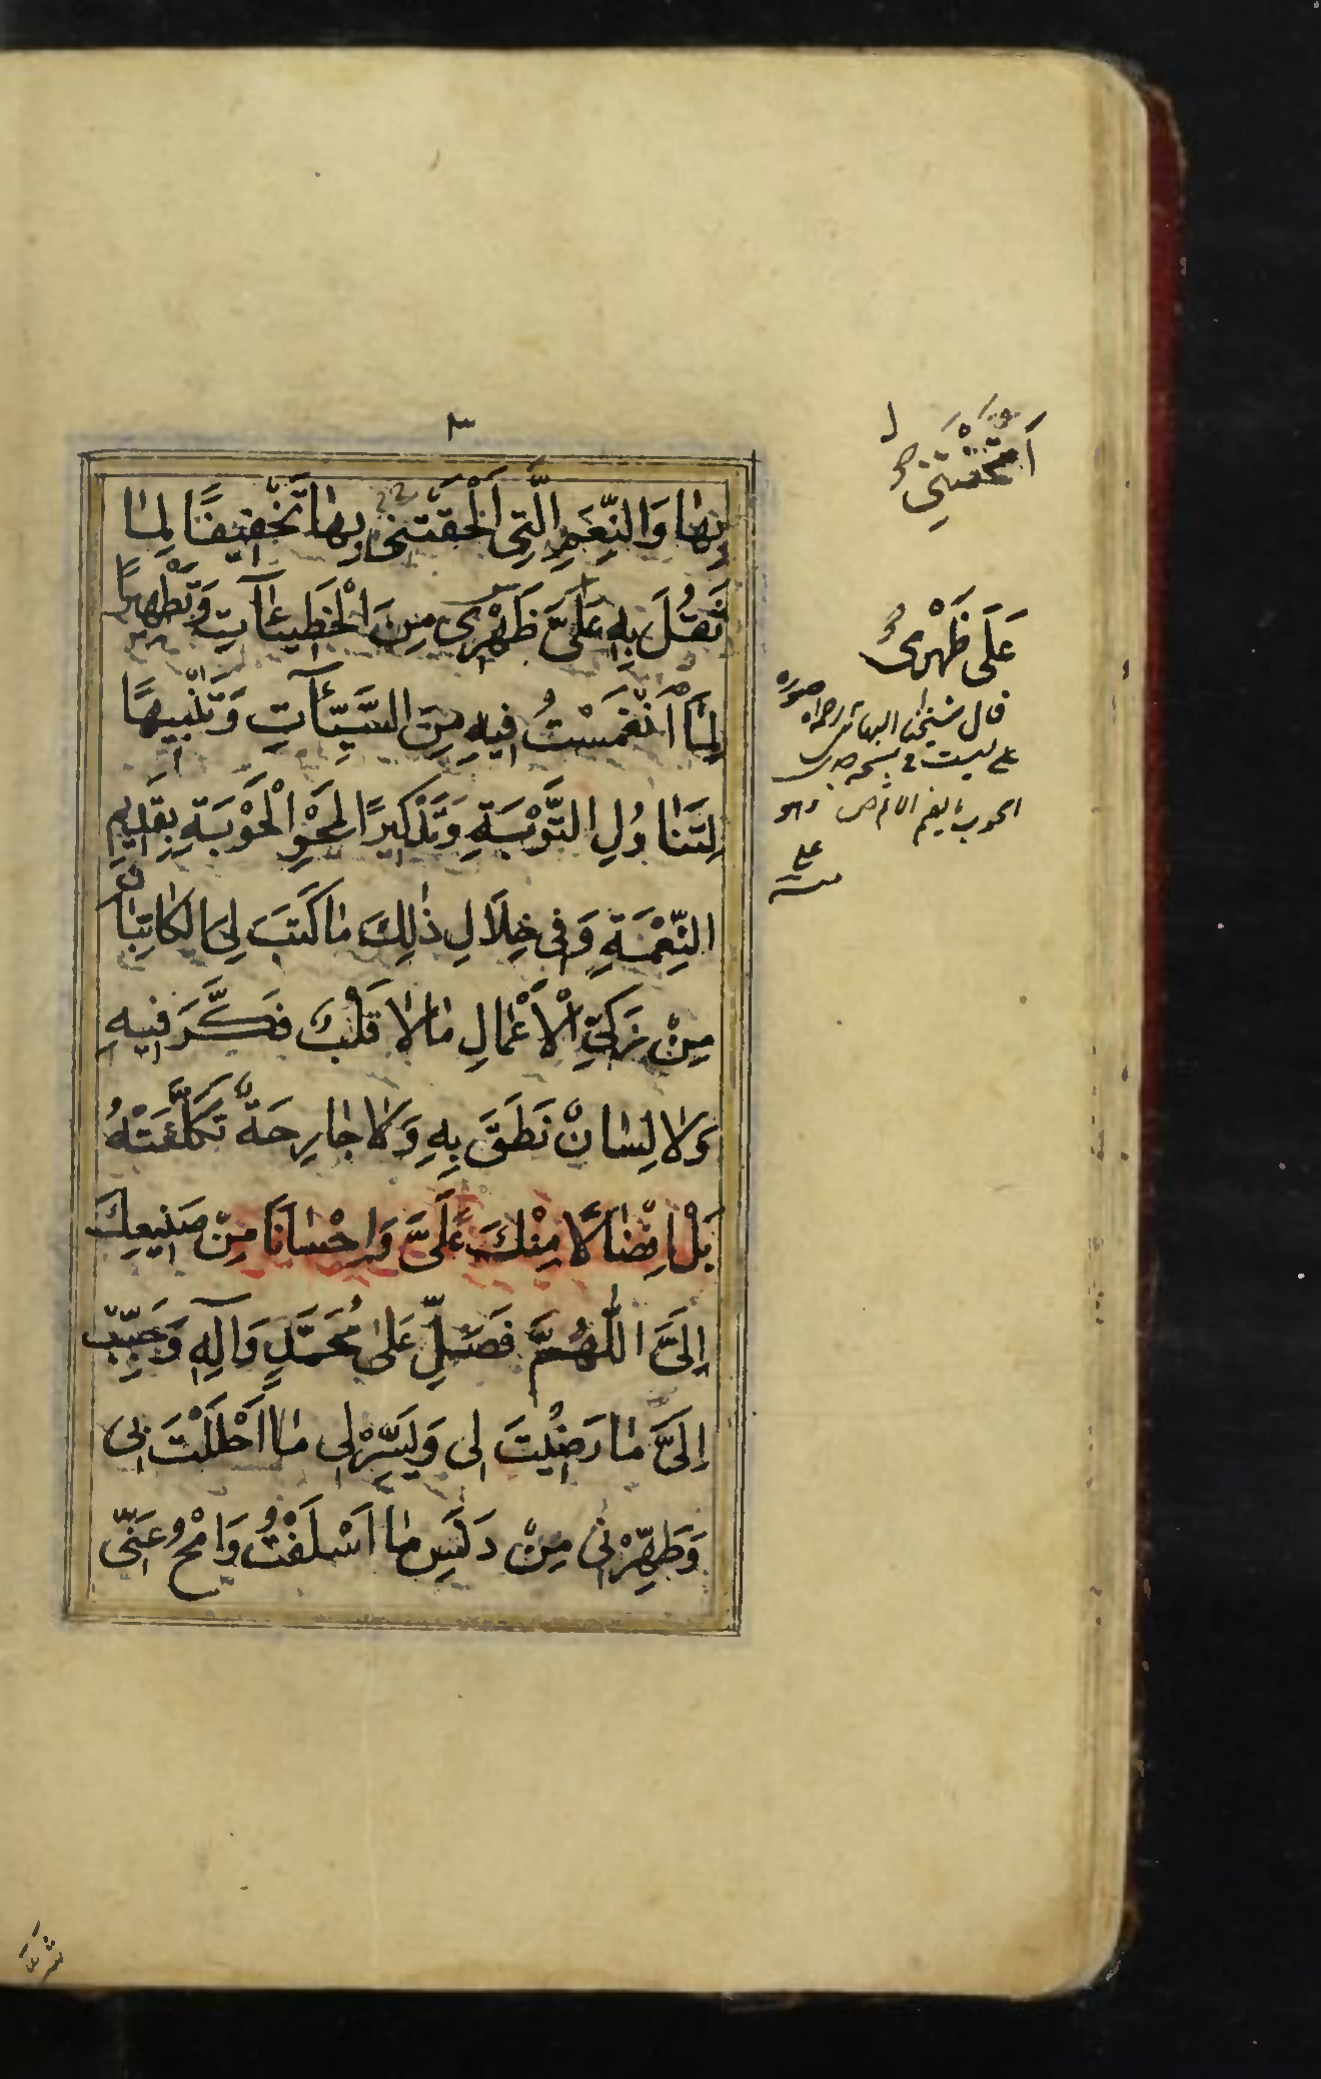 ٣
بِهٰا وَالنِّعَمِ الَّتِى اَلْحَقْتَنِى بِهٰا تَخْفِيفًا لِمٰا
ثَقُلَ بِهِ عَلَىَّ ظَهْرِى مِنَ الْخَطِيئٰاتِ وَتَطْهِيرًا
لِمَا انْغَمَسْتُ فِيهِ مِنَ السَّيِّئٰآتِ وَتَنْبِيهًا
لِتَنٰاوُلِ التَّوْبَةِ وَتَذْكِيرًا لِمَحْوِ الْحَوْبَةِ بِقَدِيمِ
النِّعْمَةِ وَفِى خِلَالِ ذٰلِكَ مٰا كَتَبَ لِىَ الْكٰاتِبٰانِ
مِنْ زَكِىِّ الْاَعْمٰالِ مٰا لٰا قَلْبٌ فَكَّرَ فِيهِ
وَلٰا لِسٰانٌ نَطَقَ بِهِ وَلٰا جٰارِحَةٌ تَكَلَّفَتْهُ
بَلْ اِفْضٰالًا مِنْكَ عَلَىَّ وَاِحْسٰانًا مِنْ صَنِيعِكَ
اِلَىَّ اللّٰهُمَّ فَصَلِّ عَلٰى مُحَمَّدٍ وَآلِهِ وَحَبِّبْ
اِلَىَّ مٰا رَضِيتَ لِى وَيَسِّرْ لِى مٰا اَحْلَلْتَ بِى
وَطَهِّرْنِى مِنْ دَنَسِ مٰا اَسْلَفْتُ وَامْحُ عَنِّى
عَلَى ظَهْرِى
قال شيخنا البهائى
على ليست فى نسخة